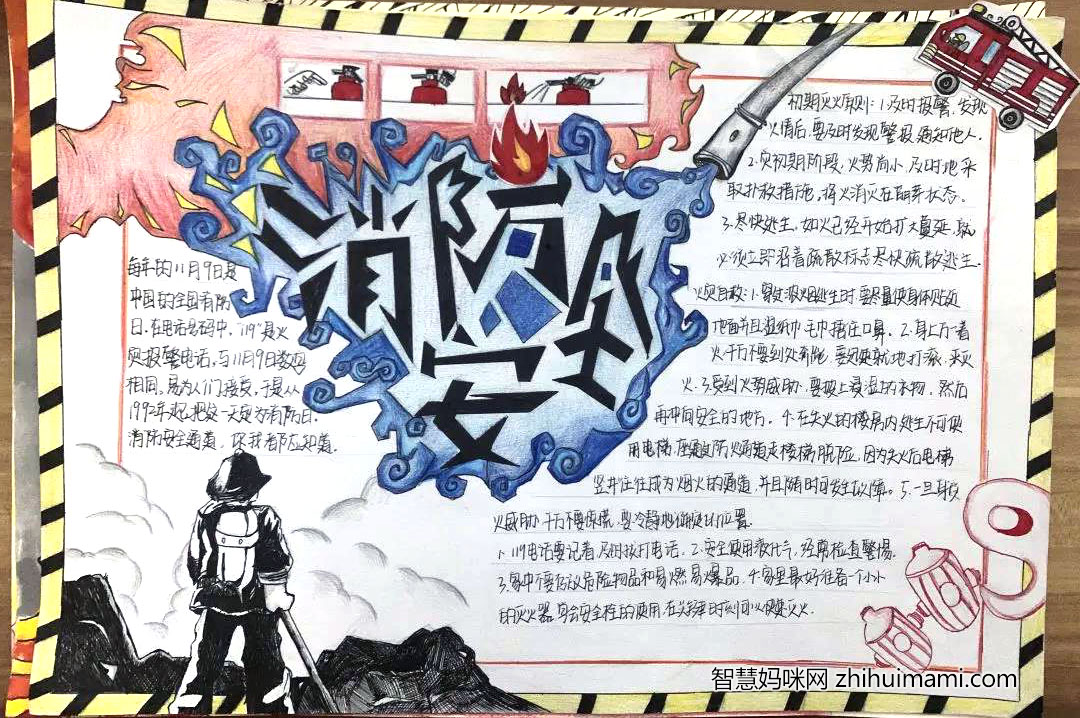 消防安全
每年的11月9日是
中国的全国消防
日.在电话号码中,"119"是火
灾报警电话,与11月9日数码
相同,易为人们接受,于是从
1992年起,把这一天定为消防日.
消防安全通道,你我都应知道.
初期灭火原则:1.及时报警,发现
火情后,要及时发现警报,通知他人.
2.灾初期阶段,火势尚小,及时地采
取扑救措施,将火消灭在萌芽状态.
3.尽快逃生,如火已经开始扩大蔓延,就
必须立即沿着疏散标志尽快疏散逃生.
火灾自救:1.穿过浓烟逃生时,要尽量使身体贴近
地面并且湿纸巾毛巾捂住口鼻. 2.身上万一着
火千万不要到处奔跑,要现就地打滚,灭
火.3.受到火势威胁,要披上浸湿的衣物,然后
再冲向安全的地方. 4.在失火的楼房内逃生不可使
用电梯,应通过防火通道走楼梯脱险,因为失火后电梯
竖井往往成为烟火的通道,并且随时间发生故障。5.一旦身受
火威胁,千万不要惊慌,要冷静地
1.119电话要记着,及时拨打电话. 2.安全使用液化气,经常检查警惕.
3.家中不要存放危险物品和易燃易爆品. 4.家里最好准备一个小小
的灭火器,学会安全性的使用.在关键时刻可以使灭火.
智慧妈咪网 zhihuimami.com